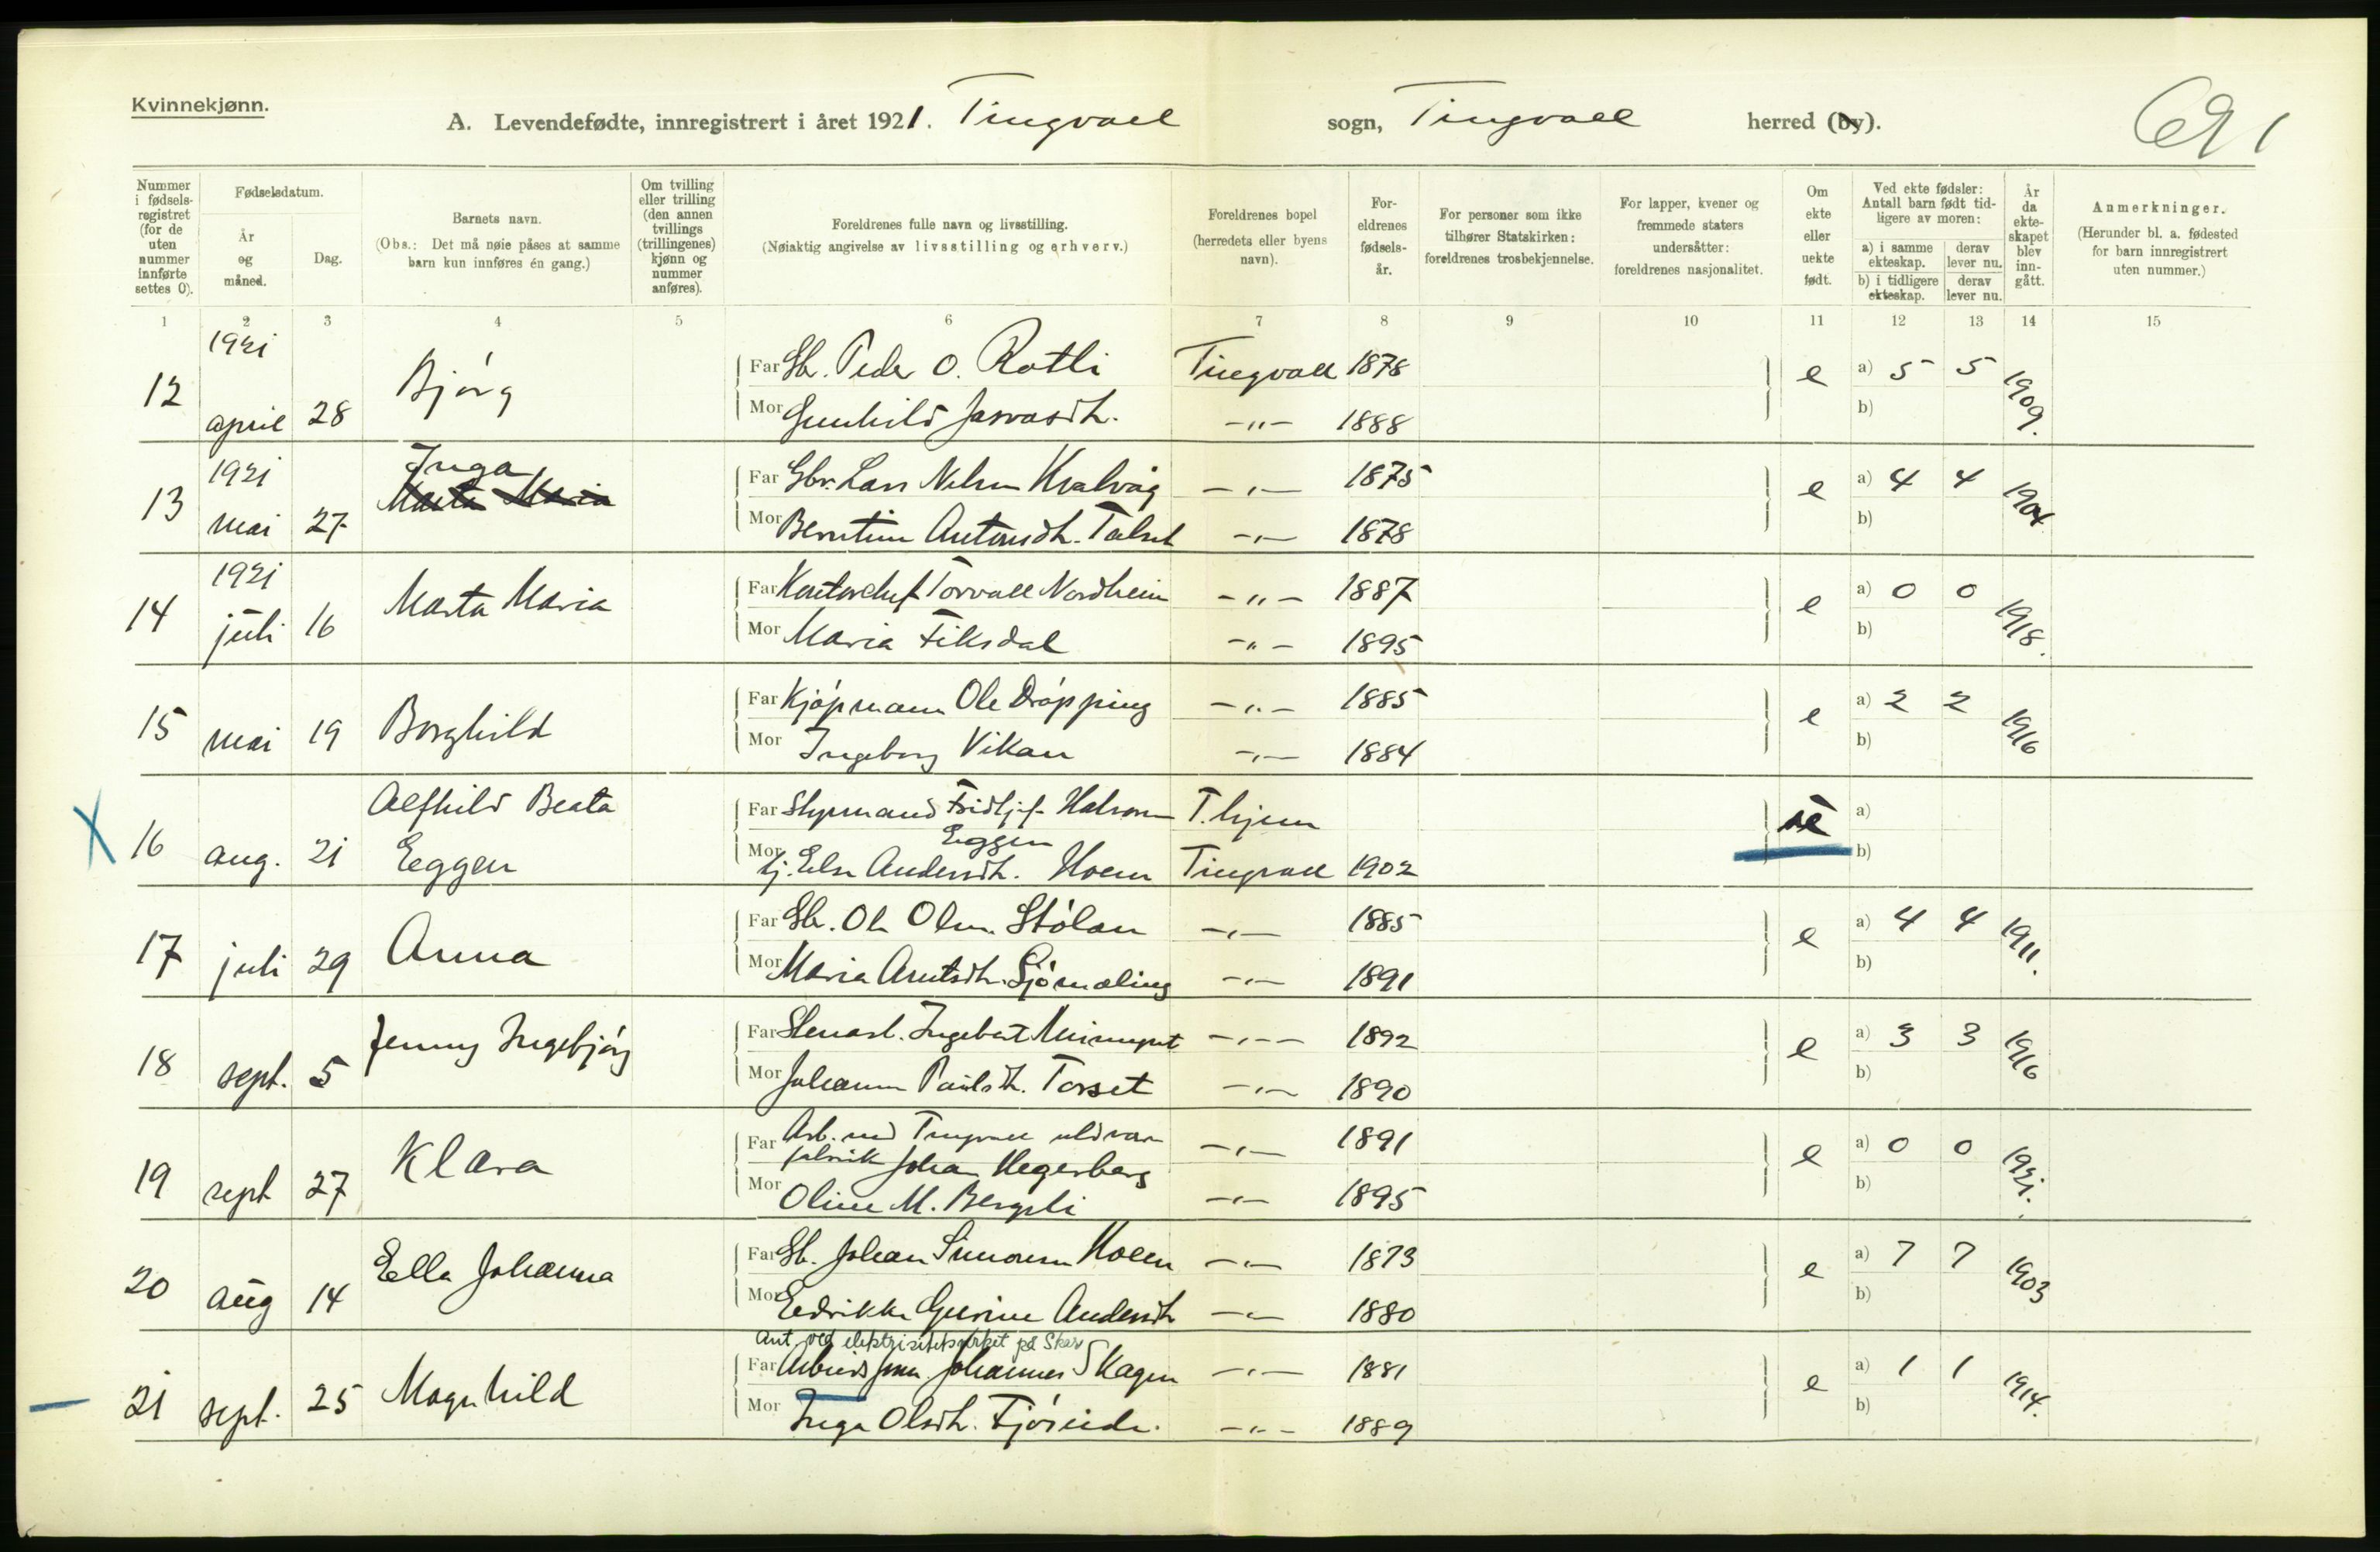 Kvinnekjønn.
A. Levendefødte, innregistrert i året 1921. Tingvoll sogn, Tingvoll herred (by).
691
Nummer i fødsels-registret (for de uten nummer innførte settes 0).
Fødselsdatum.
År og måned.
Dag.
Barnets navn.
(Obs.: Det må nøie påses at samme barn kun innføres én gang.)
Om tvilling eller trilling (den annen tvillings (trillingenes) kjønn og nummer anføres).
Foreldrenes fulle navn og livsstilling.
(Nøiaktig angivelse av livsstilling og erhverv.)
Foreldrenes bopel (herredets eller byens navn).
For-eldrenes fødsels-år.
For personer som ikke tilhører Statskirken: foreldrenes trosbekjennelse.
For lapper, kvener og fremmede staters undersåtter: foreldrenes nasjonalitet.
Om ekte eller uekte født.
Ved ekte fødsler: Antall barn født tid-ligere av moren:
a) i samme ekteskap. derav lever nu.
b) i tidligere ekteskap. derav lever nu.
År da ekte-skapet blev inn-gått.
Anmerkninger.
(Herunder bl. a. fødested for barn innregistrert uten nummer.)
1 2 3 4 5 6 7 8 9 10 11 12 13 14 15
1921
12 april 28 Bjórg
Far Gbr. Peder O. Rotli Tingvoll 1878 e a) 5 5 1909.
Mor Gunhild -"- 1888 b)
1921 Inga
13 mai 27 Marta Maria
Far Gbr. Lars Nilsen Kvalvåg -"- 1875 e a) 4 4 1904
Mor Berntine Antonsdt. Talset -"- 1878 b)
1921
14 juli 16 Marta Maria
Far Kontorchef Torvall Nordheim -"- 1887 e a) 0 0 1918.
Mor Maria Fiksdal -"- 1895 b)
15 mai 19 Borghild
Far Kjópmann Ole Drópping -"- 1885 e a) 2 2 1916
Mor Ingeborg Vikan -"- 1884 b)
X 16 aug. 21 Alfhild Beata Eggen
Far Styrmand Fridtjof Halvorsen Eggen T.hjem a)
Mor Pj. Else Andersdt. Hoem Tingvoll 1902 b)
17 juli 29 Anna
Far Gbr. Ole Olsen Stólan -"- 1885 e a) 4 4 1911.
Mor Maria Arntsdt. Gjómæling -"- 1891 b)
18 sept. 5 Jenny Ingebjórg
Far Stenarb. Ingebert -"- 1892 e a) 3 3 1916
Mor Johanne Paulsdt. Torset -"- 1890 b)
19 sept 27 Klara
Far Arb. ved Tingvoll uldvarefabrik Johan Hegerberg -"- 1891 e a) 0 0 1921.
Mor Oline M. Bergsli -"- 1895 b)
20 aug 14 Ella Johanna
Far Gb. Johan Simonsen Hoem -"- 1873 e a) 7 7 1903
Mor Edrikke Gurine Andersdt -"- 1880 b)
Ant. ved elektrisitetsverket på Skar
21 sept. 25 Magnhild
Far Arbeidsfm Johannes Skagen -"- 1881 e a) 1 1 1914.
Mor Inga Olsdt. Fjóseide. -"- 1889 b)